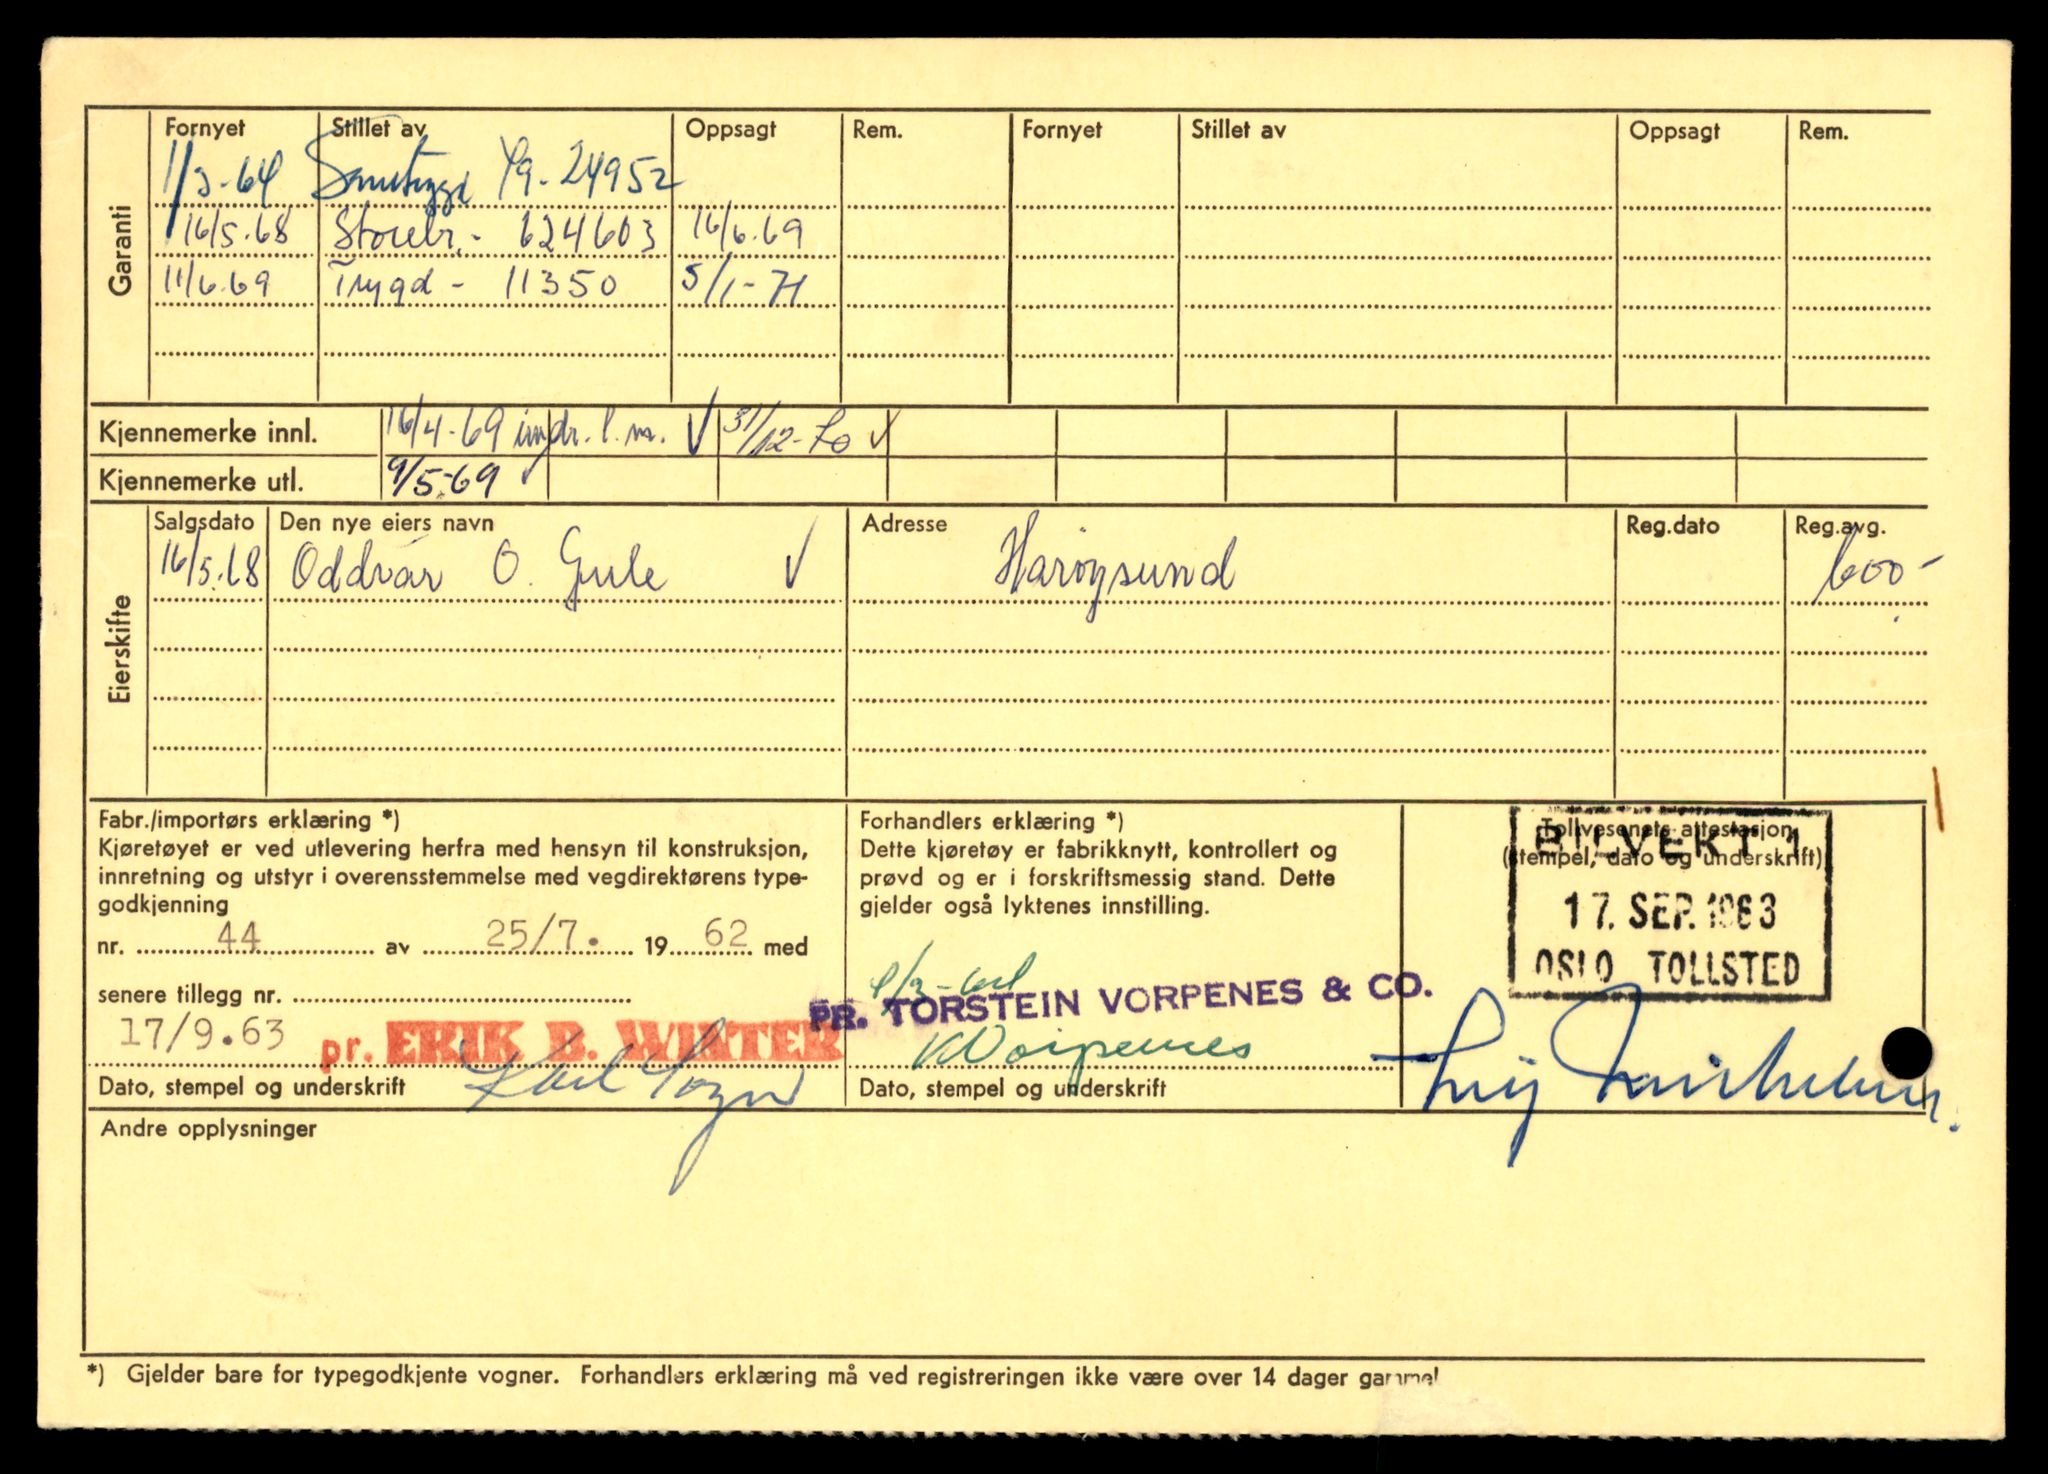 Garanti
Fornyet Stillet av Oppsagt Rem. Fornyet Stillet av Oppsagt Rem.
1/3-64 Samtrygd Yg-24952
16/5.68 Storebr.- 624603 16/6.69
11/6.69 Trygd - 11350 5/1-71
Kjennemerke innl. 16/4-69 31/12-70 ✓
Kjennemerke utl. 9/5-69 ✓
Eierskifte
Salgsdato Den nye eiers navn Adresse Reg.dato Reg.avg.
16/5.68 Oddvar O. Gule ✓ Harøysund 600-
Fabr./importørs erklæring *)
Kjøretøyet er ved utlevering herfra med hensyn til konstruksjon,
innretning og utstyr i overensstemmelse med vegdirektørens type-
godkjenning
nr. 44 av 25/7. 1962 med
senere tillegg nr.
17/9.63 pr. ERIK B. WINTER
Dato, stempel og underskrift
Forhandlers erklæring *)
Dette kjøretøy er fabrikknytt, kontrollert og
prøvd og er i forskriftsmessig stand. Dette
gjelder også lyktenes innstilling.
PR. TORSTEIN VORPENES & CO.
Vorpenes
Dato, stempel og underskrift
Tollvesenets attestasjon
(stempel, dato og underskrift)
BILVEKT 1
17. SEP. 1963
OSLO TOLLSTED
Andre opplysninger
*) Gjelder bare for typegodkjente vogner. Forhandlers erklæring må ved registreringen ikke være over 14 dager gammel